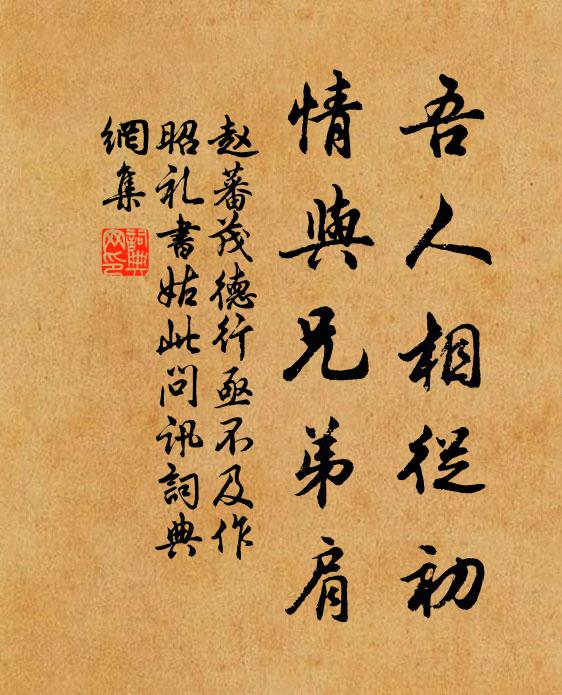 吾人相從初
情與兄弟肩
赵蕃茂德行亟不及作
昭礼書姑此问讯詞典
網集
詞典网印